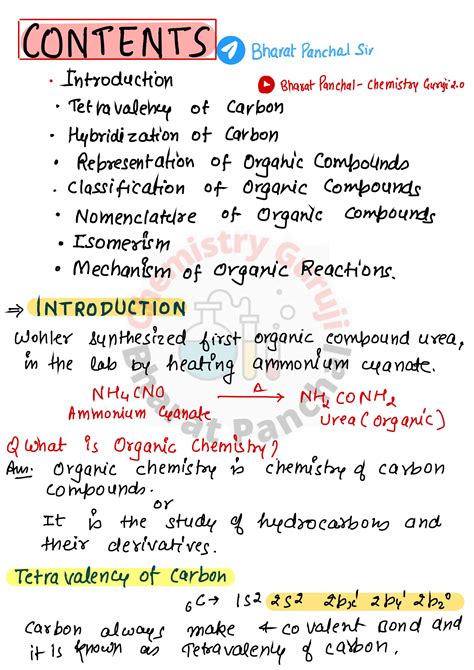 CONTENTS
Bharat Panchal Sir
Bharat Panchal - Chemistry Guruji 2.0
• Introduction
• Tetravalency of Carbon
• Hybridization of Carbon
• Representation of Organic Compounds
• Classification of Organic Compounds
• Nomenclature of Organic Compounds
• Isomerism
• Mechanism of Organic Reactions.
⇒ INTRODUCTION
Wohler synthesized first organic compound urea,
in the lab by heating ammonium cyanate.
NH4CNO —Δ→ NH2CONH2
Ammonium Cyanate Urea (Organic)
Q What is Organic Chemistry?
Ans. Organic chemistry is chemistry of carbon
compounds.
or
It is the study of hydrocarbons and
their derivatives.
Tetravalency of Carbon
6C → 1s2 2s2 2px1 2py1 2pz0
Carbon always make 4 covalent bond and
it is known as Tetravalency of carbon.
Chemistry Guruji
Bharat Panchal